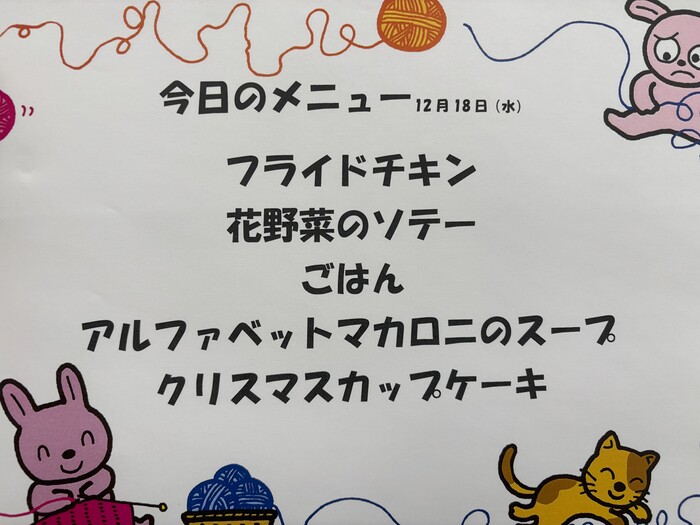 今日のメニュー12月18日（水）
フライドチキン
花野菜のソテー
ごはん
アルファベットマカロニのスープ
クリスマスカップケーキ